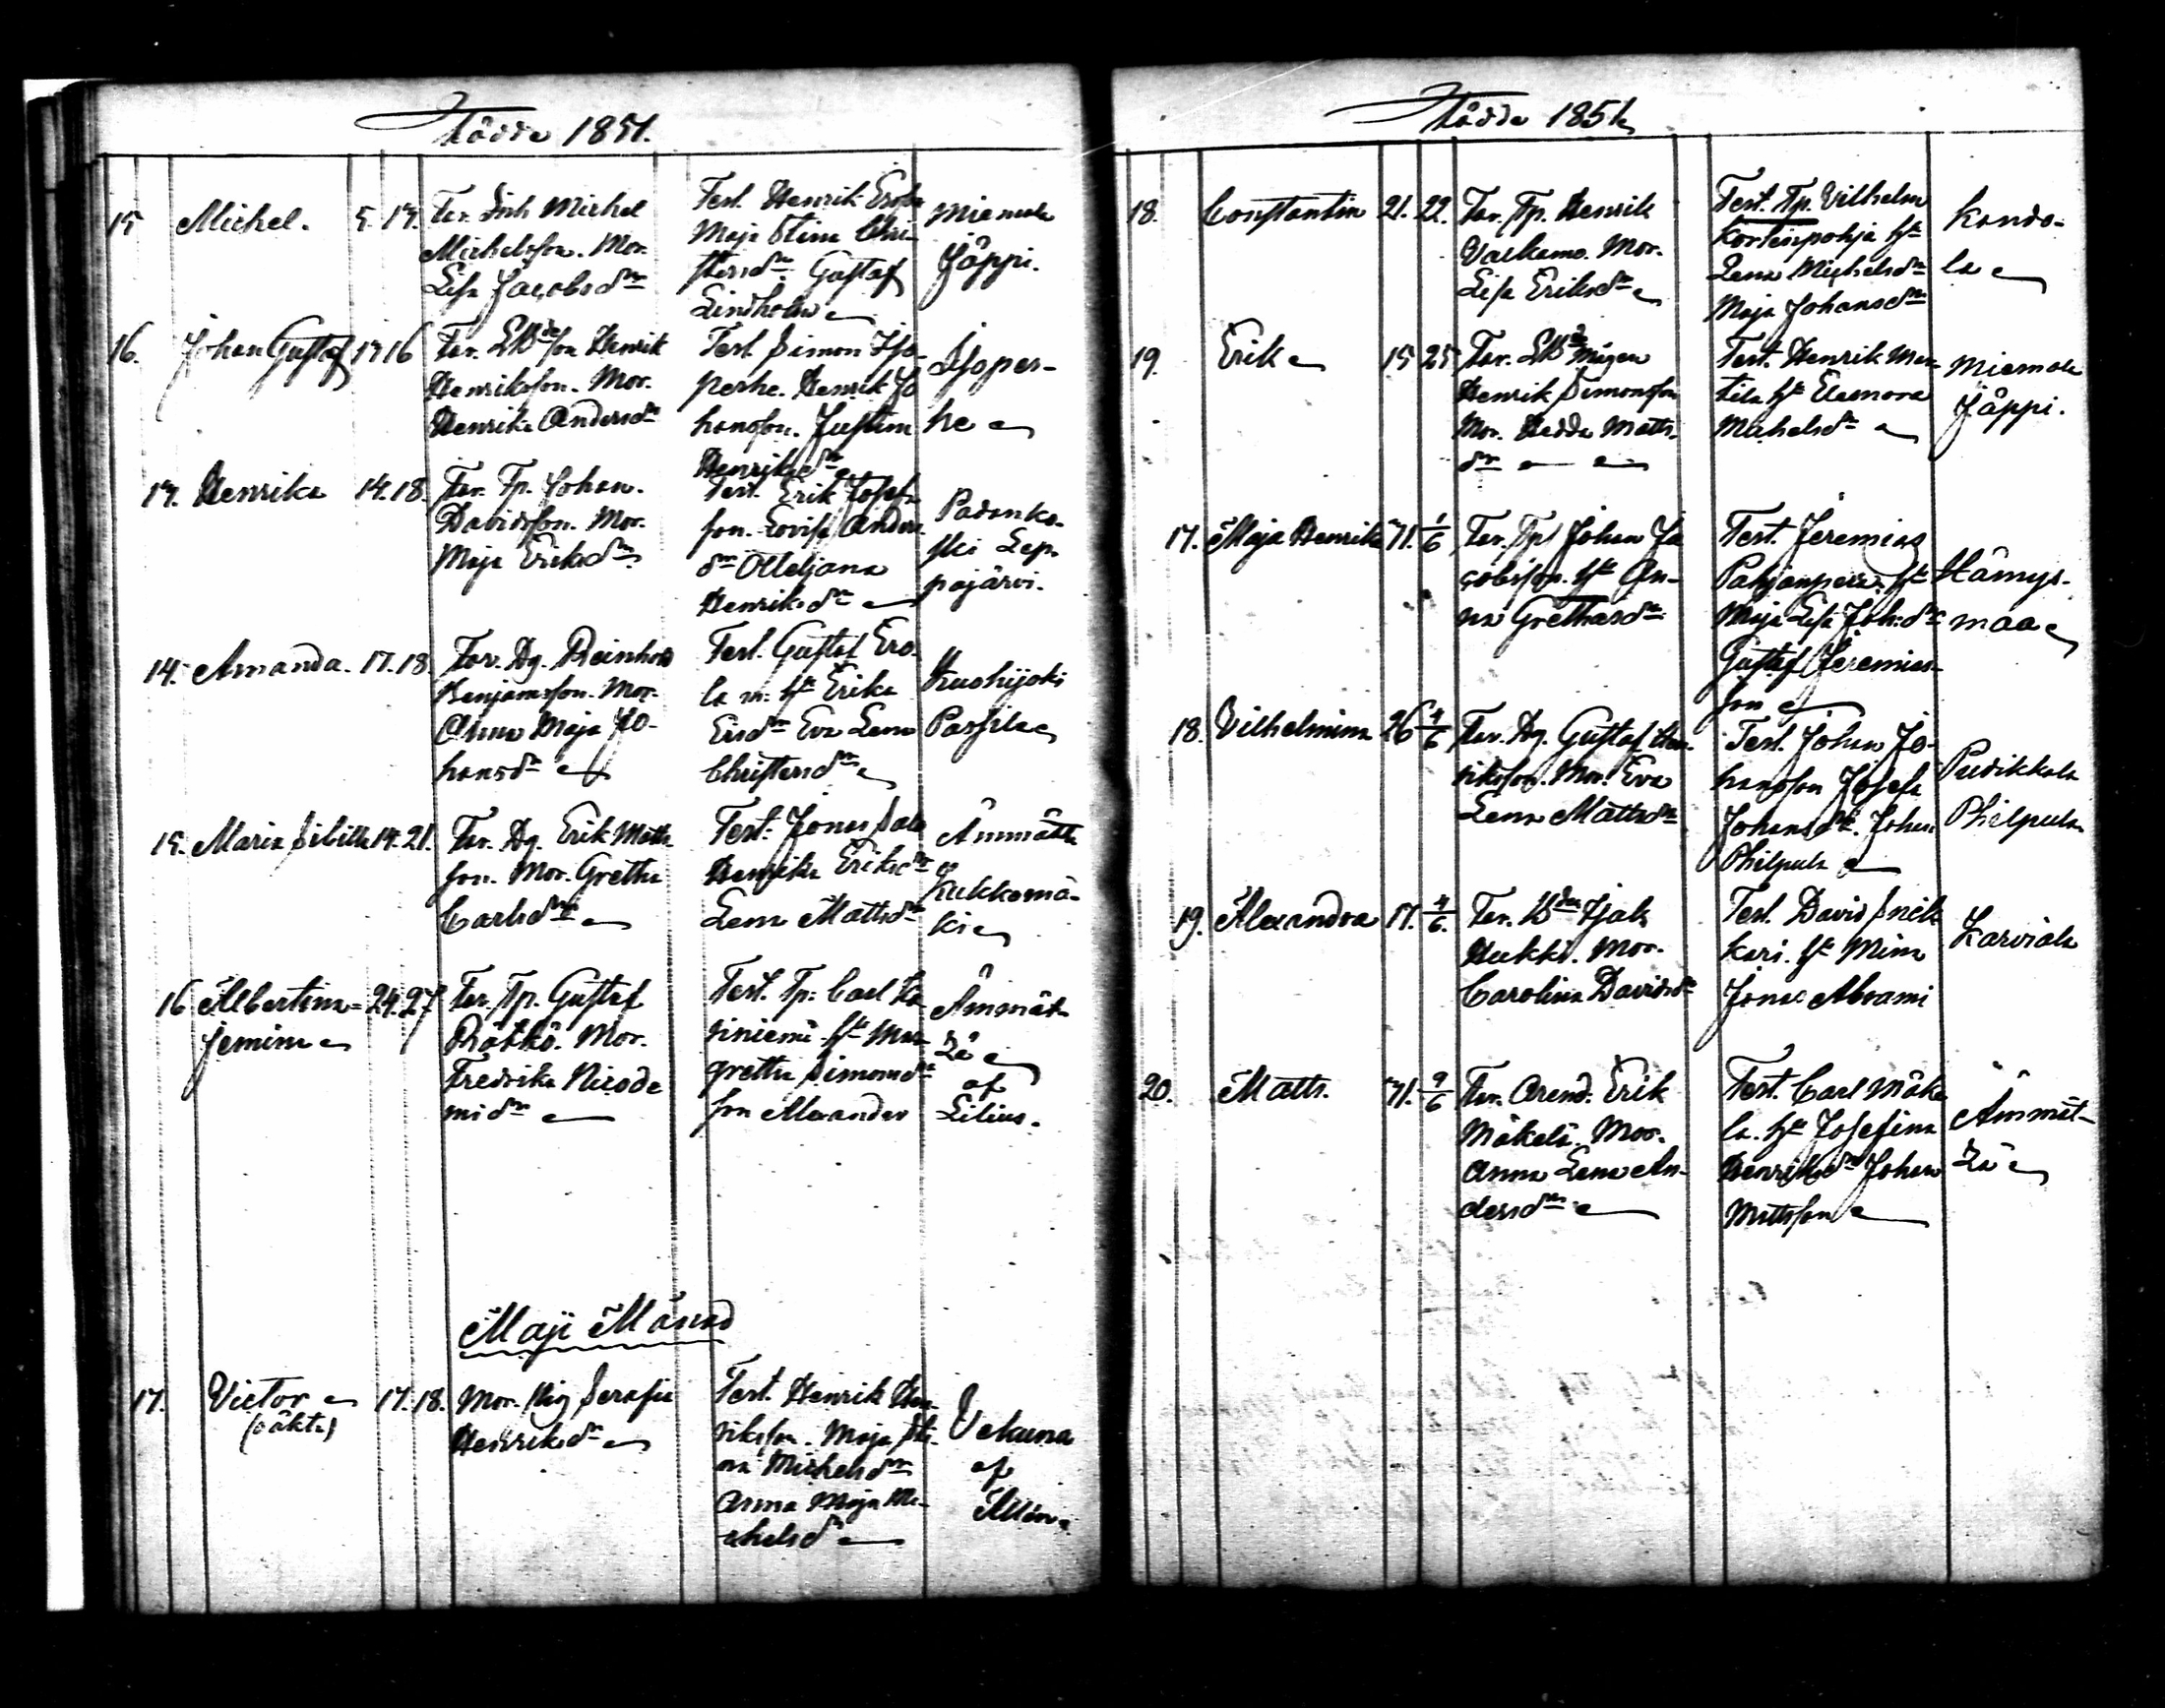 Födde 1851.
15 Michel. 5. 17. Far. Inh Michel
Michelsson. Mor.
Lisa Jacobsdr
Test. Henrik Erola
Maja Stina Chri-
stersdr Gustaf
Lindholm
Miemola
Jåppi.
16. Johan Gustaf 17 16 Far. Henrik
Henriksson. Mor.
Henrika Andersdr
Test. Simon Iso-
perhe. Henrik Jo
hansson. Justina
Henriksdr
Isoper-
he
17. Henrika 14. 18. Far. Tp. Johan.
Davidsson. Mor.
Maja Eriksdr
Test. Erik Josefs
son. Lovisa Anders
dr Otteljana
Henriksdr
Padanko-
ski Lep-
pajärvi.
14. Amanda. 17. 18. Far. Dg. Reinhold
Benjamsson. Mor.
Anna Maja Jo-
hansdr
Test. Gustaf Ero-
la m. hu Erika
Ersdr Eva Lena
Christersdr
Kuohijoki
Passila
15. Maria Sibilla 14. 21. Far. Dg. Erik Matts
son. Mor. Gretha
Carlsdr
Test. Jonas Salo
Henrika Eriksdr
Lena Mattsdr
Ämmättä
Kukkomä-
ki
16 Albertina= 24. 27 Far. Tp. Gustaf
Jemina Rätkö. Mor.
Fredrika Nicode
midr
Test. Tp. Carl Ka
riniemi hu Mar
gretha Simonsdr
son Alexander
Ämmät-
zä
af
Lilius.
Maji Månad
17. Victor 17. 18. Mor. Pig Serafia
(oäkta) Henriksdr
Test. Henrik Hen-
riksson. Maja Sti-
na Michelsdr
Anna Maja Mi-
chelsdr
Vekuna
af
Födde 1851
18. Constantin 21. 22. Far. Tp. Henrik
Valkamo. Mor.
Lisa Eriksdr
Test. Tp. Vilhelm
Kortenpohja hu
Lena Michelsdr
Maja Johansdr
Kando-
la
19. Erik 15 25 Far. Mågen
Henrik Simonsson
Mor. Hedda Matts-
dr
Test. Henrik Man-
tila hu Eleonora
Michelsdr
Miemola
Jåppi.
17. Maja Henrika 71. 1/6 Far. Tp. Johan Ja
cobsson. hu An-
na Grethasdr
Test. Jeremias
Pohjanpera. hu
Maja Lisa Joh:dr
Gustaf Jeremias-
son
Hämys-
maa
18. Vilhelmina 26 4/6 Far. Dg. Gustaf Hen-
riksson. Mor. Eva
Lena Mattsdr
Test. Johan Jo-
hansson Josefa
Johansdr. Johan
Philpula
Puidikkala
Philpula
19. Alexandra 17. 4/6. Far. Isak
Hukki. Mor.
Carolina Davidsdr
Test. David Snik
kari. hu Mina
Jonas Abrami
Karviala
20. Matts. 71. 9/6 Far. Arend. Erik
Mäkelä. Mor.
Anna Lena An-
dersdr
Test. Carl Mäke
la. hu Josefina
Henriksdr Johan
Mattsson
Ämmät-
zä